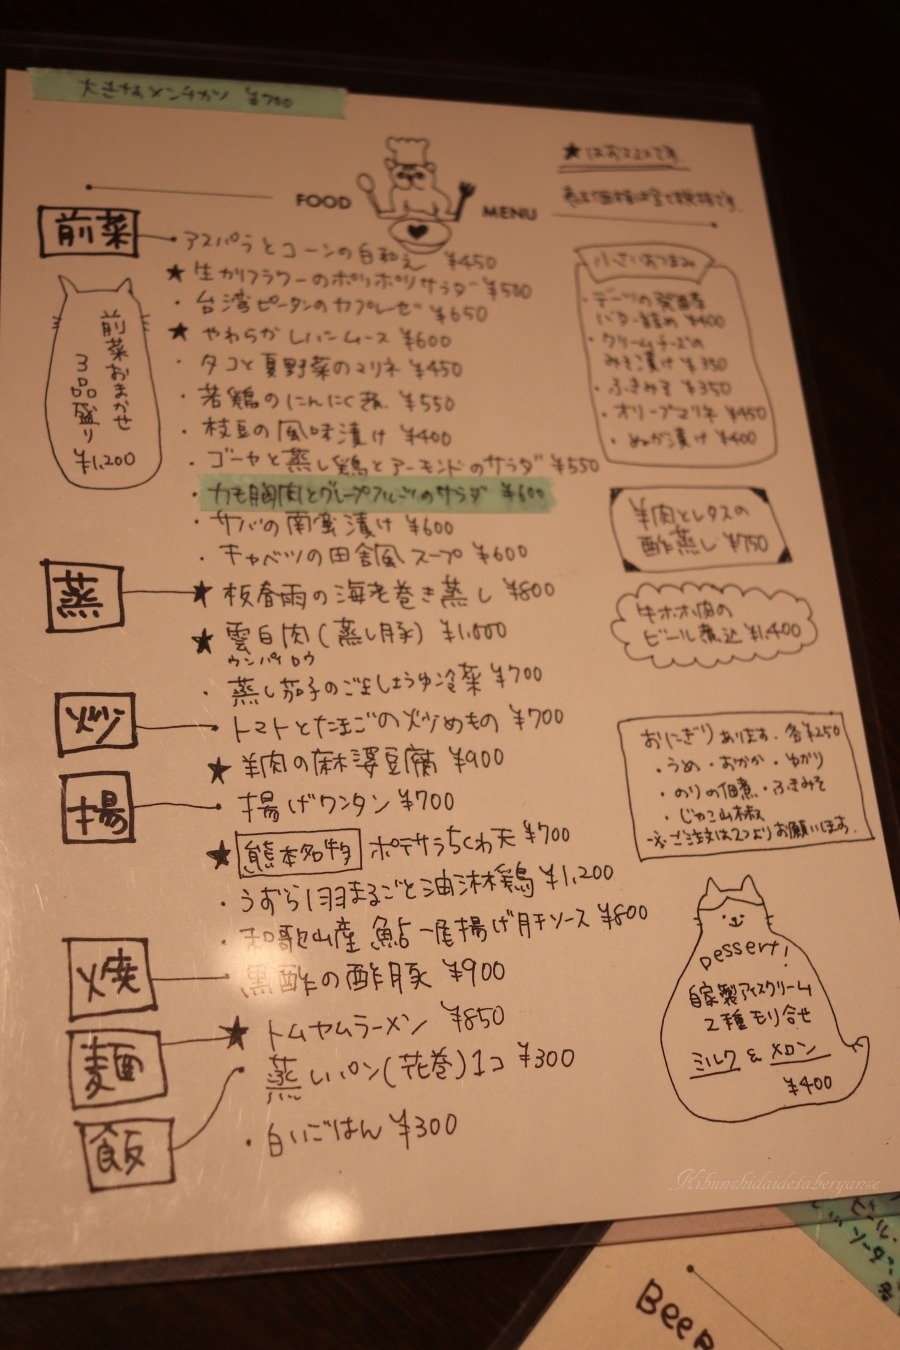 大きなメンチカツ ¥700
★はおススメです
表示価格は全て税抜です
FOOD MENU
前菜
・アスパラとコーンの白和え ¥450
★生カリフラワーのポリポリサラダ ¥500
・台湾ピータンのカプレーゼ ¥650
★やわらかレバームース ¥600
・タコと夏野菜のマリネ ¥450
・若鶏のにんにく煮 ¥550
・枝豆の風味漬け ¥400
・ゴーヤと蒸し鶏とアーモンドのサラダ ¥550
・カモ胸肉とグレープフルーツのサラダ ¥600
・サバの南蛮漬け ¥600
・キャベツの田舎風スープ ¥600
前菜おまかせ
3品盛り
¥1,200
蒸
★板春雨の海老巻き蒸し ¥800
★雲白肉(蒸し豚) ¥1,000
ウンパイロウ
・蒸し茄子のごましょうゆ冷菜 ¥700
炒
・トマトとたまごの炒めもの ¥700
★羊肉の麻婆豆腐 ¥900
揚
・揚げワンタン ¥700
★熊本名物 ポテサラちくわ天 ¥700
・うずら1羽まるごと油淋鶏 ¥1,200
・和歌山産 鮎一尾揚げ肝ソース ¥800
焼
・黒酢の酢豚 ¥900
麺
★トムヤムラーメン ¥850
飯
・蒸しパン(花巻)1コ ¥300
・白いごはん ¥300
小さいおつまみ
・デーツの発酵
バター詰め ¥400
・クリームチーズの
みそ漬け ¥350
・ふきみそ ¥350
・オリーブマリネ ¥450
・ぬか漬け ¥400
羊肉とレタスの
酢蒸し ¥750
牛ホホ肉の
ビール煮込 ¥1,400
おにぎりあります。各¥250
・うめ・おかか・ゆかり
・のりの佃煮・ふきみそ
・じゃこ山椒
※ご注文は2つよりお願いします。
Dessert!
自家製アイスクリーム
2種もり合せ
ミルク & メロン
¥400
Kibunshidaidetaberyanse
ビール
ソーダ
Beer